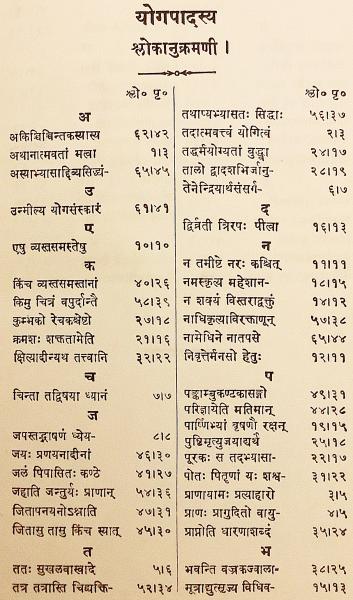 योगपादस्य
श्लोकानुक्रमणी ।
श्लो० पृ०
अ
अकिञ्चिच्चिन्तकस्यास्य ६२।४२
अथानात्मवतां मत्वा १।३
अस्याभ्यासाद्दिव्यसिज्यं- ६५।४५
उ
उन्मील्य योगसंस्कारं ६१।४१
ए
एषु व्यस्तसमस्तेषु १०।१०
क
किंच व्यस्तसमस्तानां ४०।२६
किमु चित्रं वपुर्दान्तै ५८।३९
कुम्भको रेचकश्रेष्टो २७।१८
क्रमशः शक्ततामेति २१।१६
क्षित्यादीन्यथ तत्त्वानि ३२।२२
च
चिन्ता तद्विषया ध्यानं ७।७
ज
जपस्तद्भाषणं ध्येय- ८।८
जयः प्रणयनादीनां ४६।३०
जलं पिपासितः कण्ठे ४१।२७
जहाति जन्तुर्यः प्राणान् ५४।३६
जितापनयनोऽश्नाति ४७।३१
जितासु तासु किंच स्यात् ४५।३०
त
ततः सुखलवास्वादे ५।६
तत्र तत्रास्ति चिद्व्यक्ति- ५२।३४
श्लो० पृ०
तथाप्यभ्यासतः सिद्धाः ५६।३७
तदात्मवत्त्वं योगित्वं २।३
तद्धर्मयोग्यतां बुद्ध्वा २४।१७
तालो द्वादशभिर्जानु- २८।१९
तेनेन्द्रियार्थसंसर्ग- ६।७
द
द्विर्वती त्रिरपः पीत्वा १६।१३
न
न तमीष्टे नरः कश्चित् ११।११
नमस्कृत्य महेशान- १८।१५
न शक्यं विस्तराद्वक्तुं १४।१२
नाधिकृत्याविरक्ताणून् ५७।३८
नामेधिने नातपसे ६५।४४
निवृत्तेर्मनसो हेतुः १२।११
प
पङ्काम्बुकण्टकासङ्गो ४९।३१
परिज्ञायेति मतिमान् ४४।२८
पार्ष्णिभ्यां वृषणौ रक्षन् १९।१५
पुच्छिमृत्युजयाद्यर्थं २५।१८
पूरकः स तदभ्यासा- २२।१७
पोतः पितॄणां यः शश्व- ३१।२२
प्राणायामः प्रत्याहारो ३।५
प्राणः प्रागुदितो वायु- ४।५
प्राप्नोति धारणाशब्दं ३५।२४
भ
भवन्ति वज्रकज्वाला- ३८।२५
मूत्राद्युत्सृज्य विधिव- १५।१३